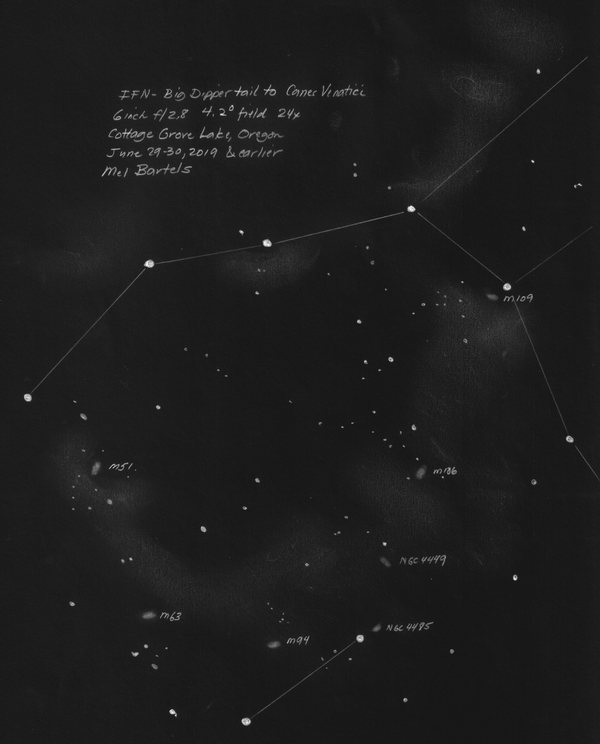 IFN- Big Dipper tail to Canes Venatici
6inch f/2.8 4.2° field 24x
Cottage Grove Lake, Oregon
June 29-30, 2019 & earlier
Mel Bartels
M109
M51
M106
NGC 4449
M63
NGC 4485
M94